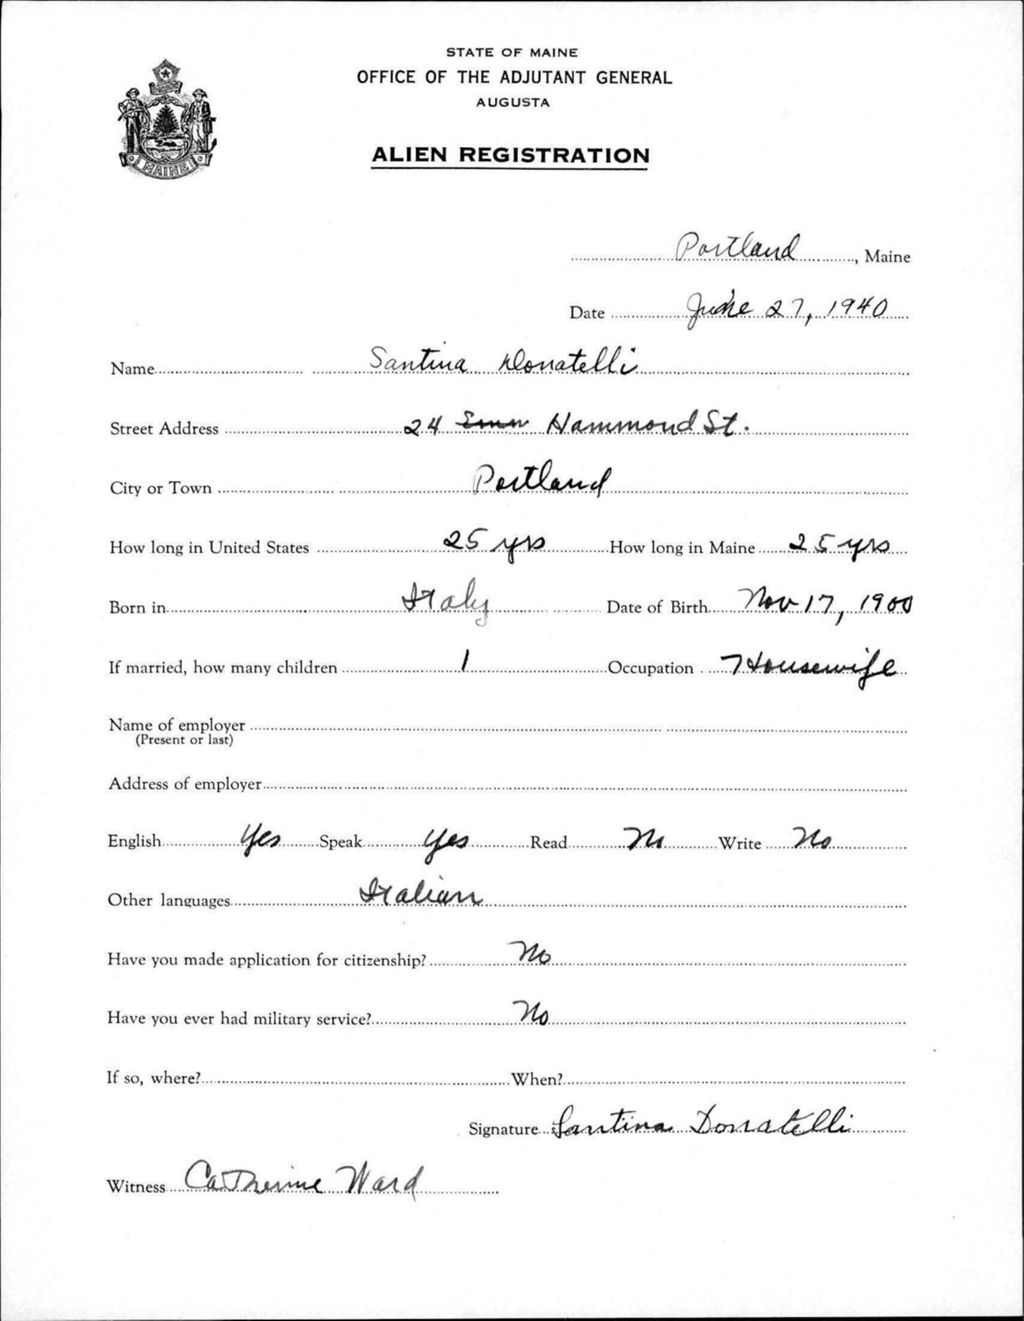 STATE OF MAINE
OFFICE OF THE ADJUTANT GENERAL
AUGUSTA
ALIEN REGISTRATION
MAINE
Portland, Maine
Date June 27, 1940
Name Santina Donatelli
Street Address 24 Hammond St.
City or Town Portland
How long in United States 25 yrs How long in Maine 25 yrs
Born in Italy Date of Birth Nov 17, 1900
If married, how many children 1 Occupation Housewife
Name of employer
(Present or last)
Address of employer
English Yes Speak Yes Read No Write No
Other languages Italian
Have you made application for citizenship? No
Have you ever had military service? No
If so, where? When?
Signature Santina Donatelli
Witness Catherine Ward